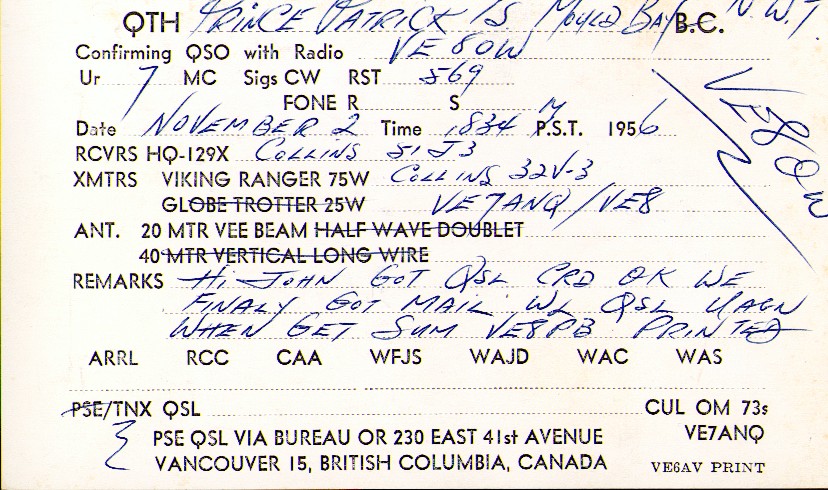 QTH PRINCE PATRICK IS MOULD BAY B.C. N.W.T.
Confirming QSO with Radio VE8OW
Ur 7 MC Sigs CW RST 569
FONE R S
Date NOVEMBER 2 Time 1834 M P.S.T. 1956
VE8OW
RCVRS HQ-129X COLLINS 51J3
XMTRS VIKING RANGER 75W COLLINS 32V-3
GLOBE TROTTER 25W VE7ANQ/VE8
ANT. 20 MTR VEE BEAM HALF WAVE DOUBLET
40 MTR VERTICAL LONG WIRE
REMARKS HI JOHN GOT QSL CRD OK WE
FINALY GOT MAIL WL QSL UAGN
WHEN GET SUM VE8PB PRINTED
ARRL RCC CAA WFJS WAJD WAC WAS
PSE/TNX QSL CUL OM 73s
PSE QSL VIA BUREAU OR 230 EAST 41st AVENUE VE7ANQ
VANCOUVER 15, BRITISH COLUMBIA, CANADA VE6AV PRINT